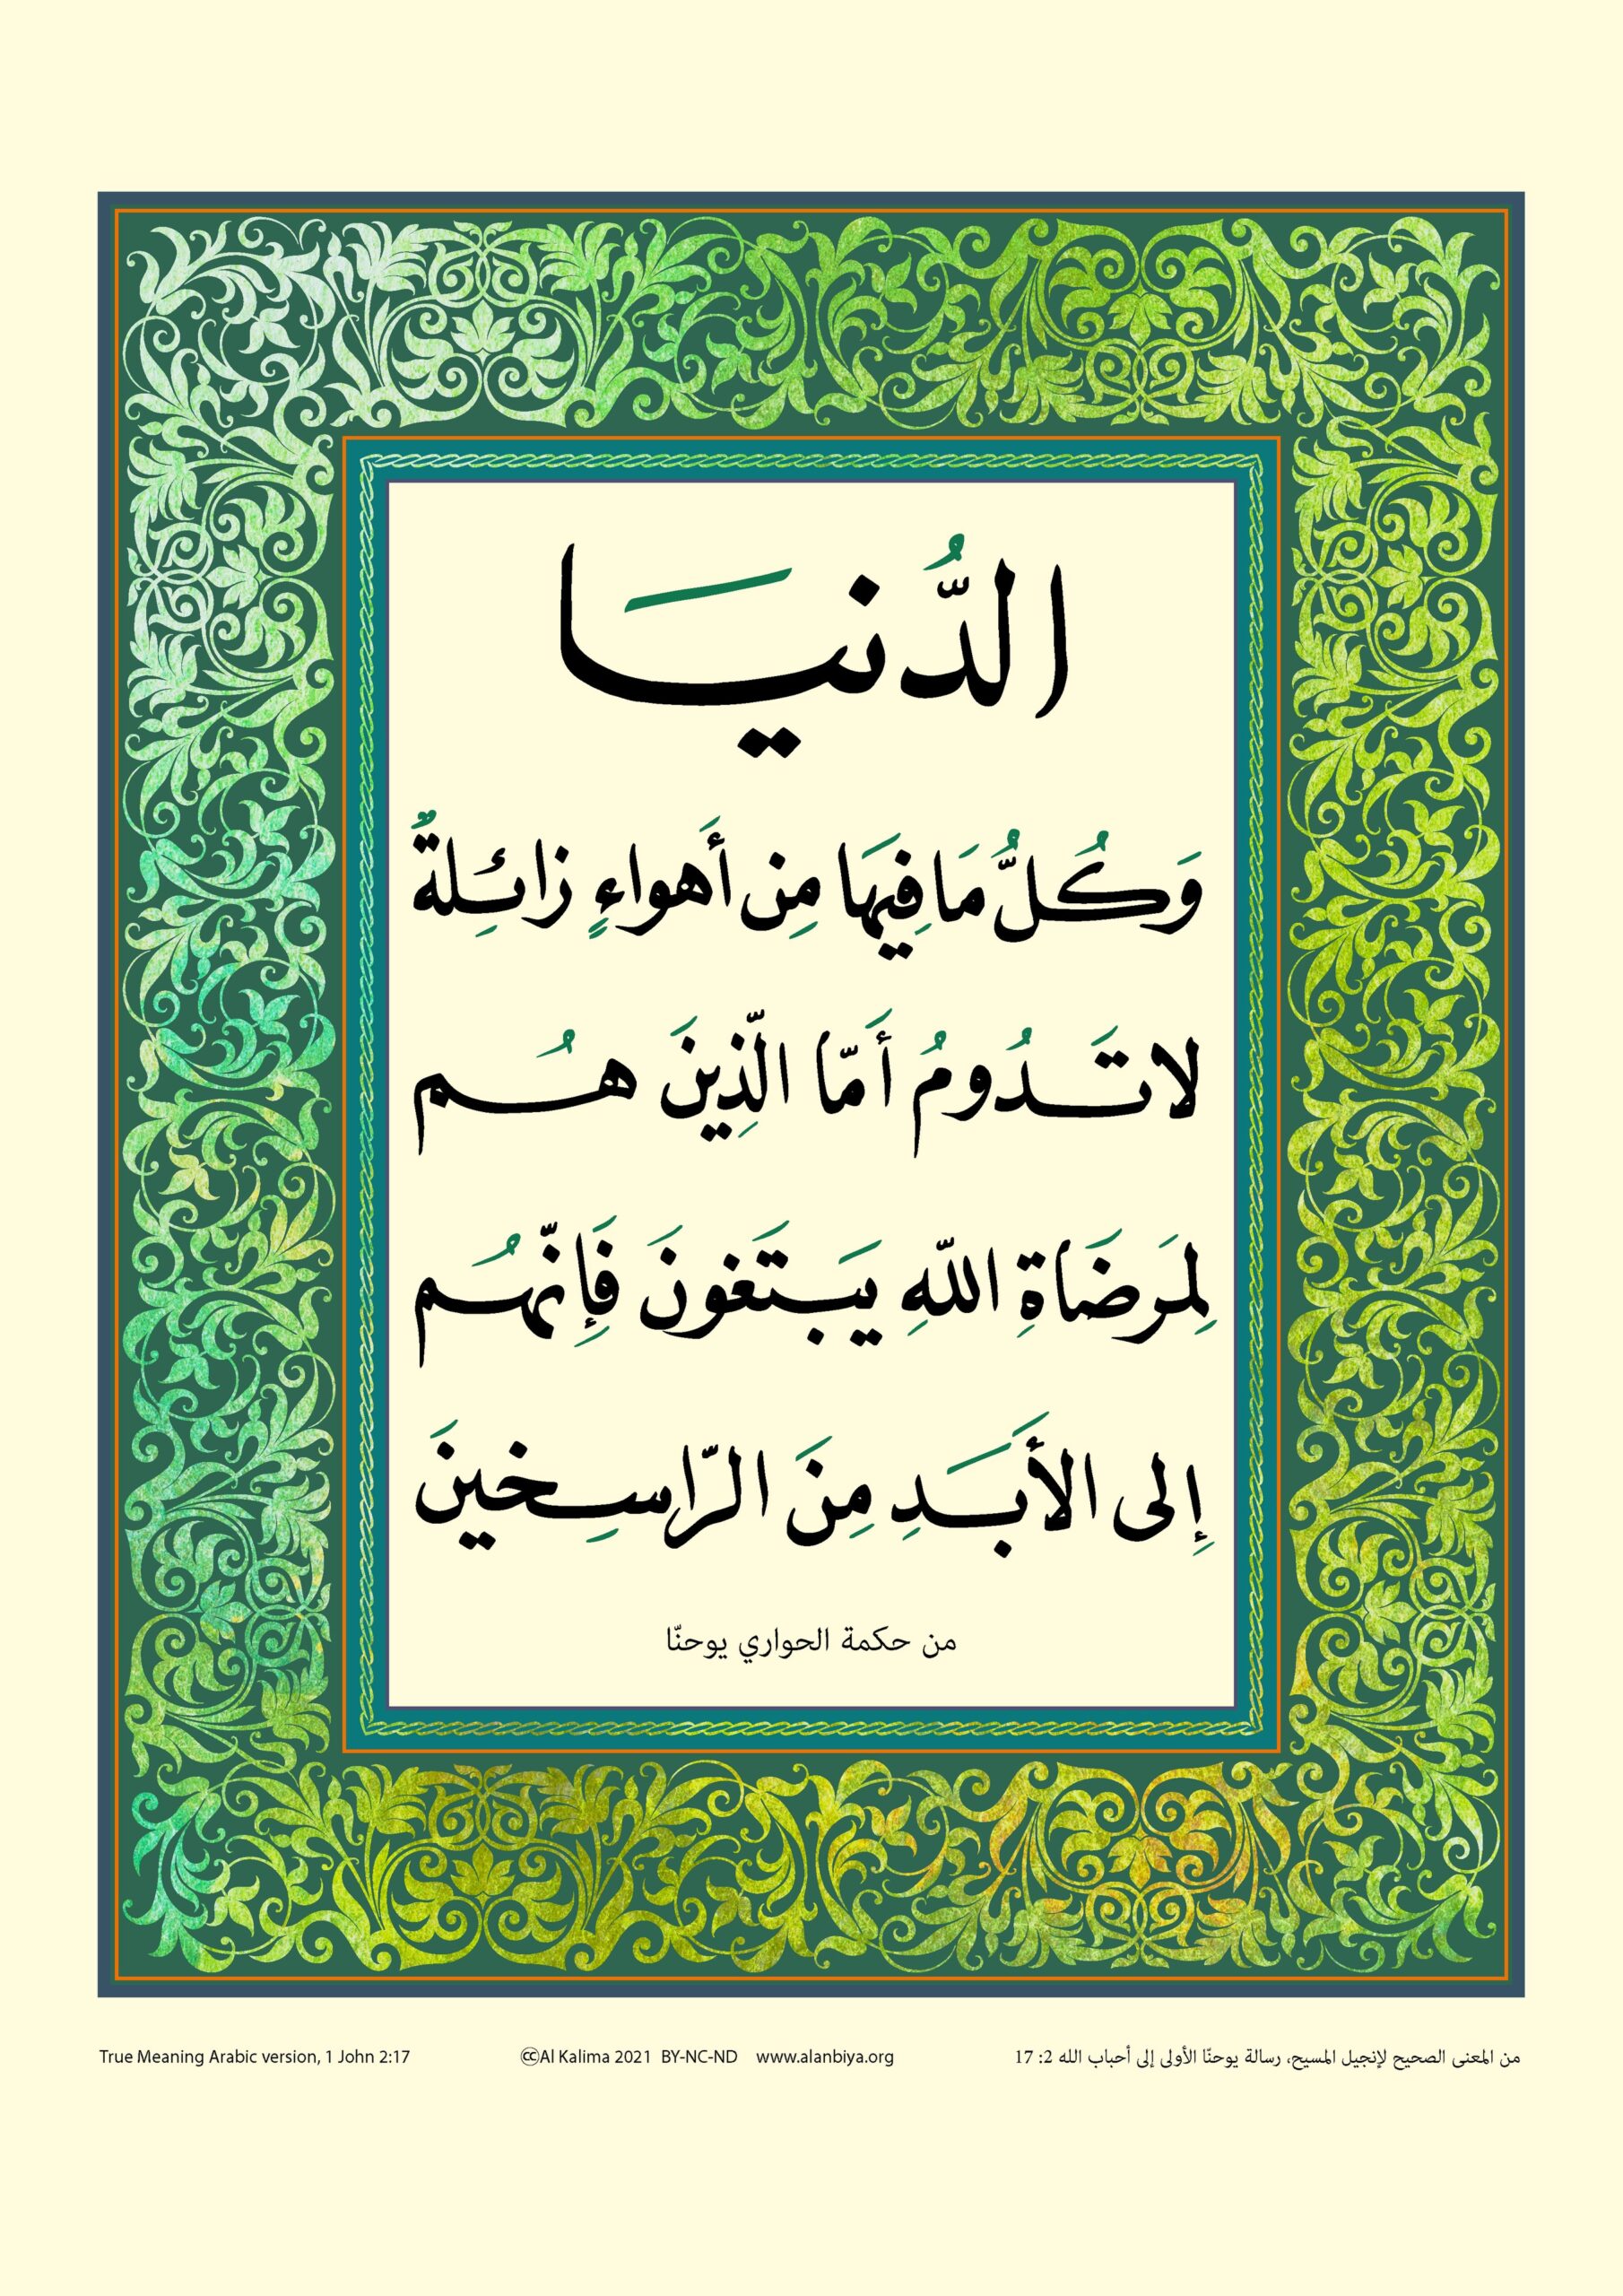 الدُّنيَا
وَكُلُّ مَا فِيهَا مِن أَهواءٍ زائِلةٌ
لا تَدُومُ أَمّا الّذِينَ هُم
لِمَرضَاةِ اللّهِ يَبتَغونَ فَإِنّهُم
إِلى الأَبَدِ مِنَ الرّاسِخينَ
من حكمة الحواري يوحنّا
True Meaning Arabic version, 1 John 2:17
🄭Al Kalima 2021 BY-NC-ND www.alanbiya.org
من المعنى الصحيح لإنجيل المسيح، رسالة يوحنّا الأولى إلى أحباب الله 2: 17